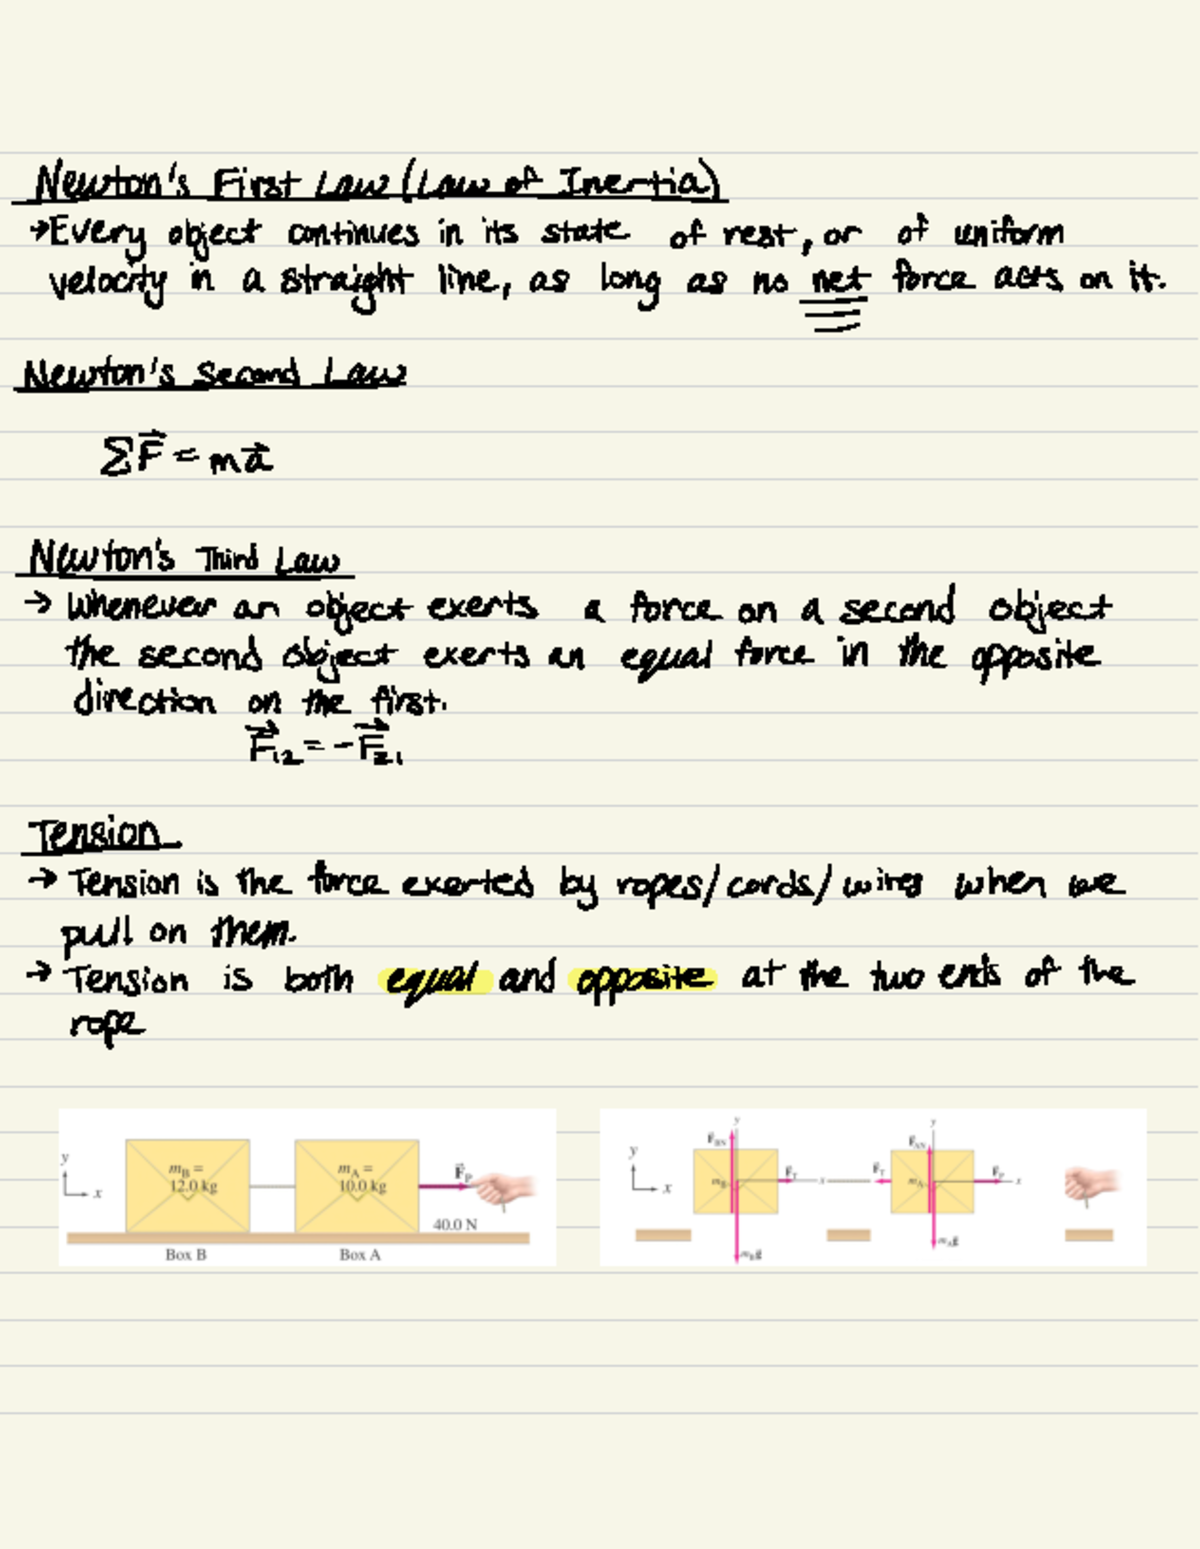 Newton's First Law (Law of Inertia)
→ Every object continues in its state of rest, or of uniform
velocity in a straight line, as long as no net force acts on it.
Newton's Second Law
ΣF⃗ = ma⃗
Newton's Third Law
→ Whenever an object exerts a force on a second object
the second object exerts an equal force in the opposite
direction on the first.
F⃗₁₂ = -F⃗₂₁
Tension
→ Tension is the force exerted by ropes/cords/wires when we
pull on them.
→ Tension is both equal and opposite at the two ends of the
rope
y
x
m_B =
12.0 kg
m_A =
10.0 kg
F⃗_P
40.0 N
Box B
Box A
y
x
y
F⃗_BN
m_B
F⃗_T
x
m_B g⃗
y
F⃗_AN
F⃗_T
m_A
F⃗_P
x
m_A g⃗